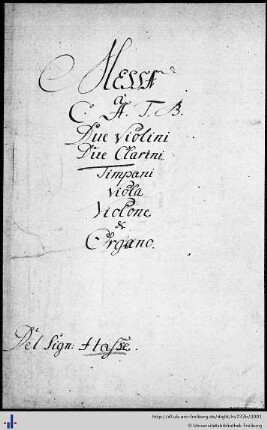 MESSA
a
C. A. T. B.
Due Violini
Due Clarini
Timpani
Viola
Violone
&
Organo.
Del Sign: Hasse.
http://dl.ub.uni-freiburg.de/diglit/hs723b/0001
© Universitätsbibliothek Freiburg